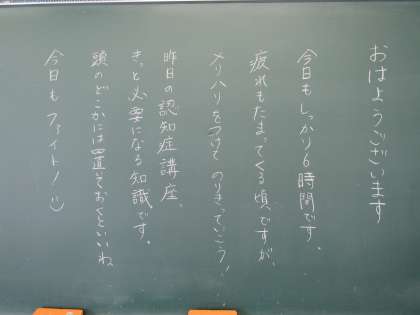 おはようございます
今日もしっかり6時間です、
疲れもたまってくる頃ですが、
メリハリをつけて のりきっていこう!
昨日の認知症講座、
きっと必要になる知識です。
頭のどこかには置いておくといいね
今日も ファイト!